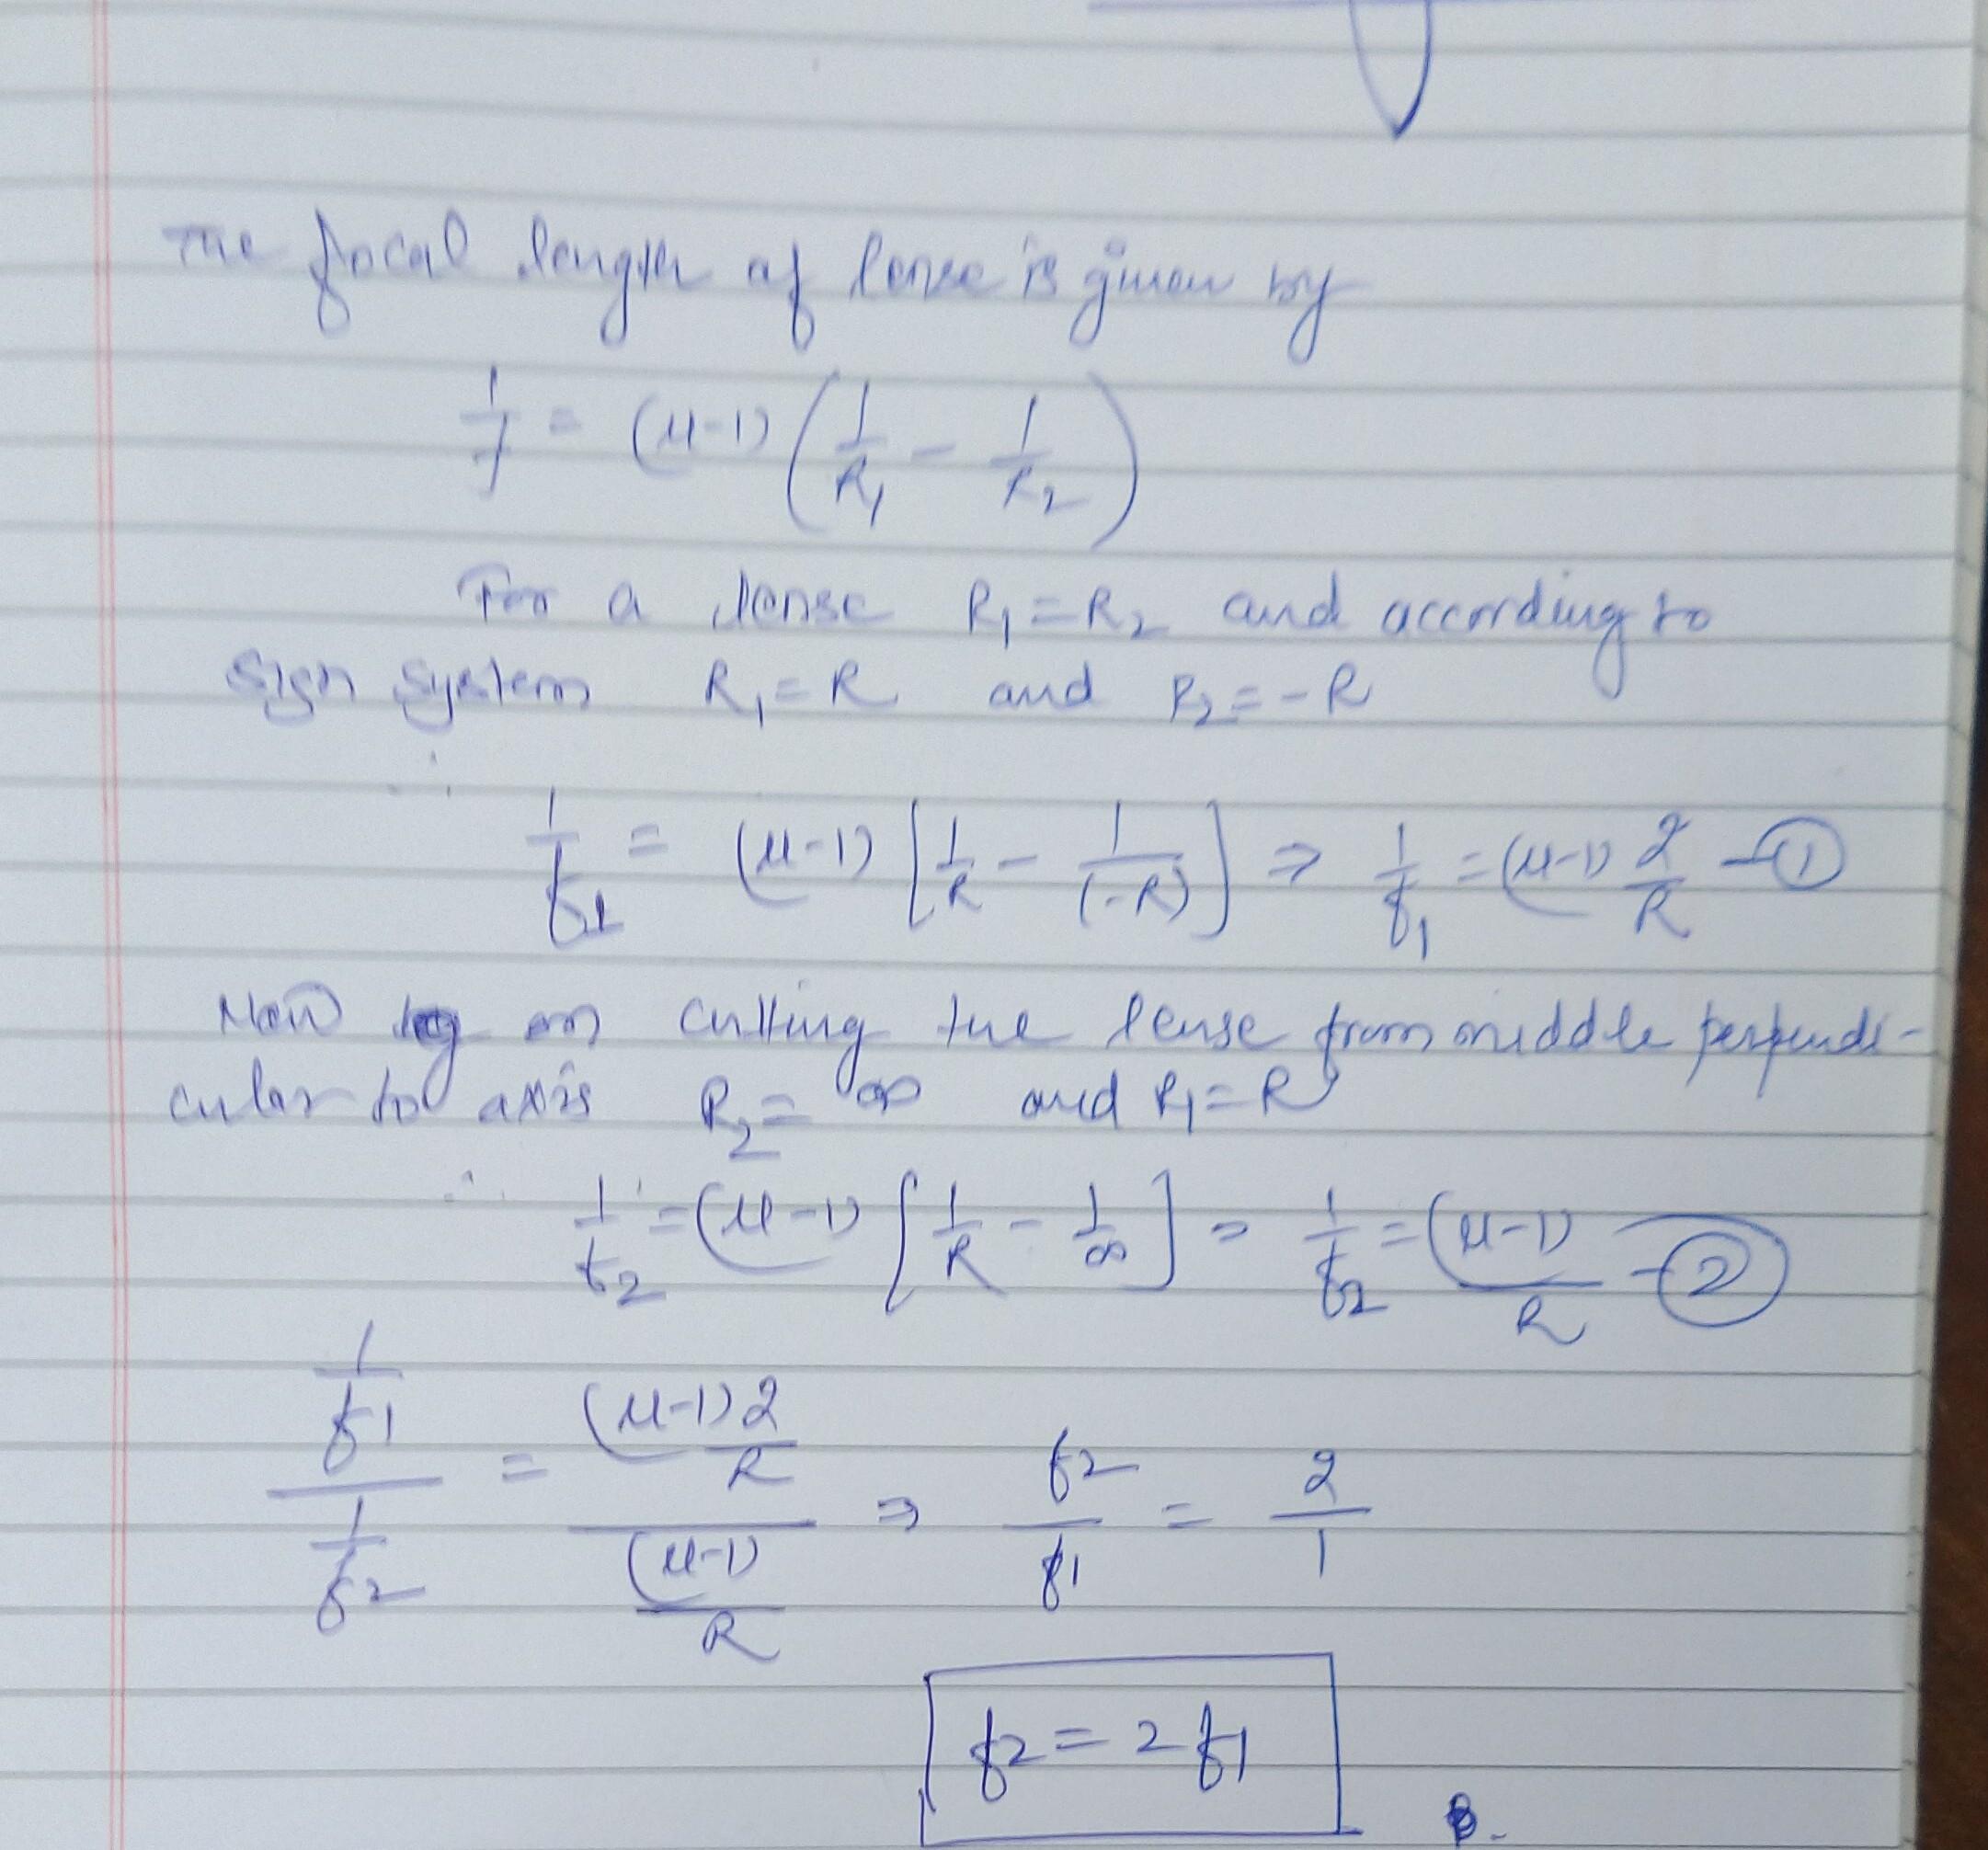 The focal length of lense is given by
1/f = (μ-1) (1/R₁ - 1/R₂)
For a lense R₁ = R₂ and according to
sign system R₁ = R and R₂ = -R
∴ 1/f₁ = (μ-1) [1/R - 1/(-R)] ⇒ 1/f₁ = (μ-1) 2/R —①
Now on cutting the lense from middle perpendi-
cular to axis R₂ = ∞ and R₁ = R
∴ 1/f₂ = (μ-1) [1/R - 1/∞] = 1/f₂ = (μ-1)/R —②
(1/f₁)/(1/f₂) = ((μ-1) 2/R)/((μ-1)/R) ⇒ f₂/f₁ = 2/1
f₂ = 2 f₁